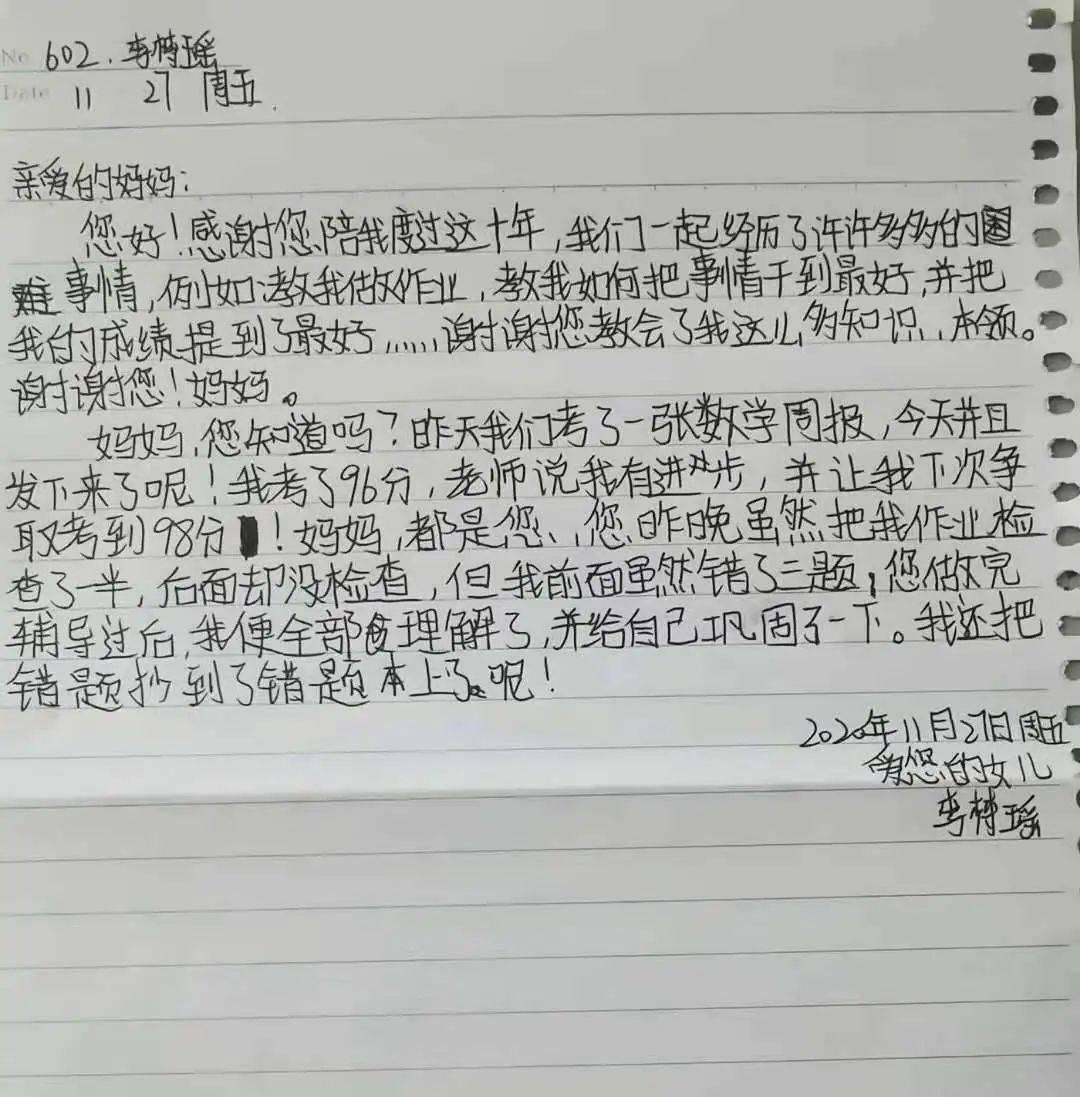 No 602. 李梓瑶
Date 11 27 周五.
亲爱的妈妈:
您好!感谢您陪我度过这十年,我们一起经历了许许多多的困
难事情,例如:教我做作业,教我如何把事情干到最好,并把
我的成绩提到了最好,……谢谢您教会了我这么多知识、本领。
谢谢您!妈妈。
妈妈,您知道吗?昨天我们考了一张数学周报,今天并且
发下来了呢!我考了96分,老师说我有进步,并让我下次争
取考到98分!妈妈,都是您、您昨晚虽然把我作业检
查了一半,后面却没检查,但我前面虽然错了二题,您做完
辅导过后,我便全部理解了,并给自己巩固了一下。我还把
错题抄到了错题本上了呢!
2020年11月27日周五
爱您的女儿
李梓瑶